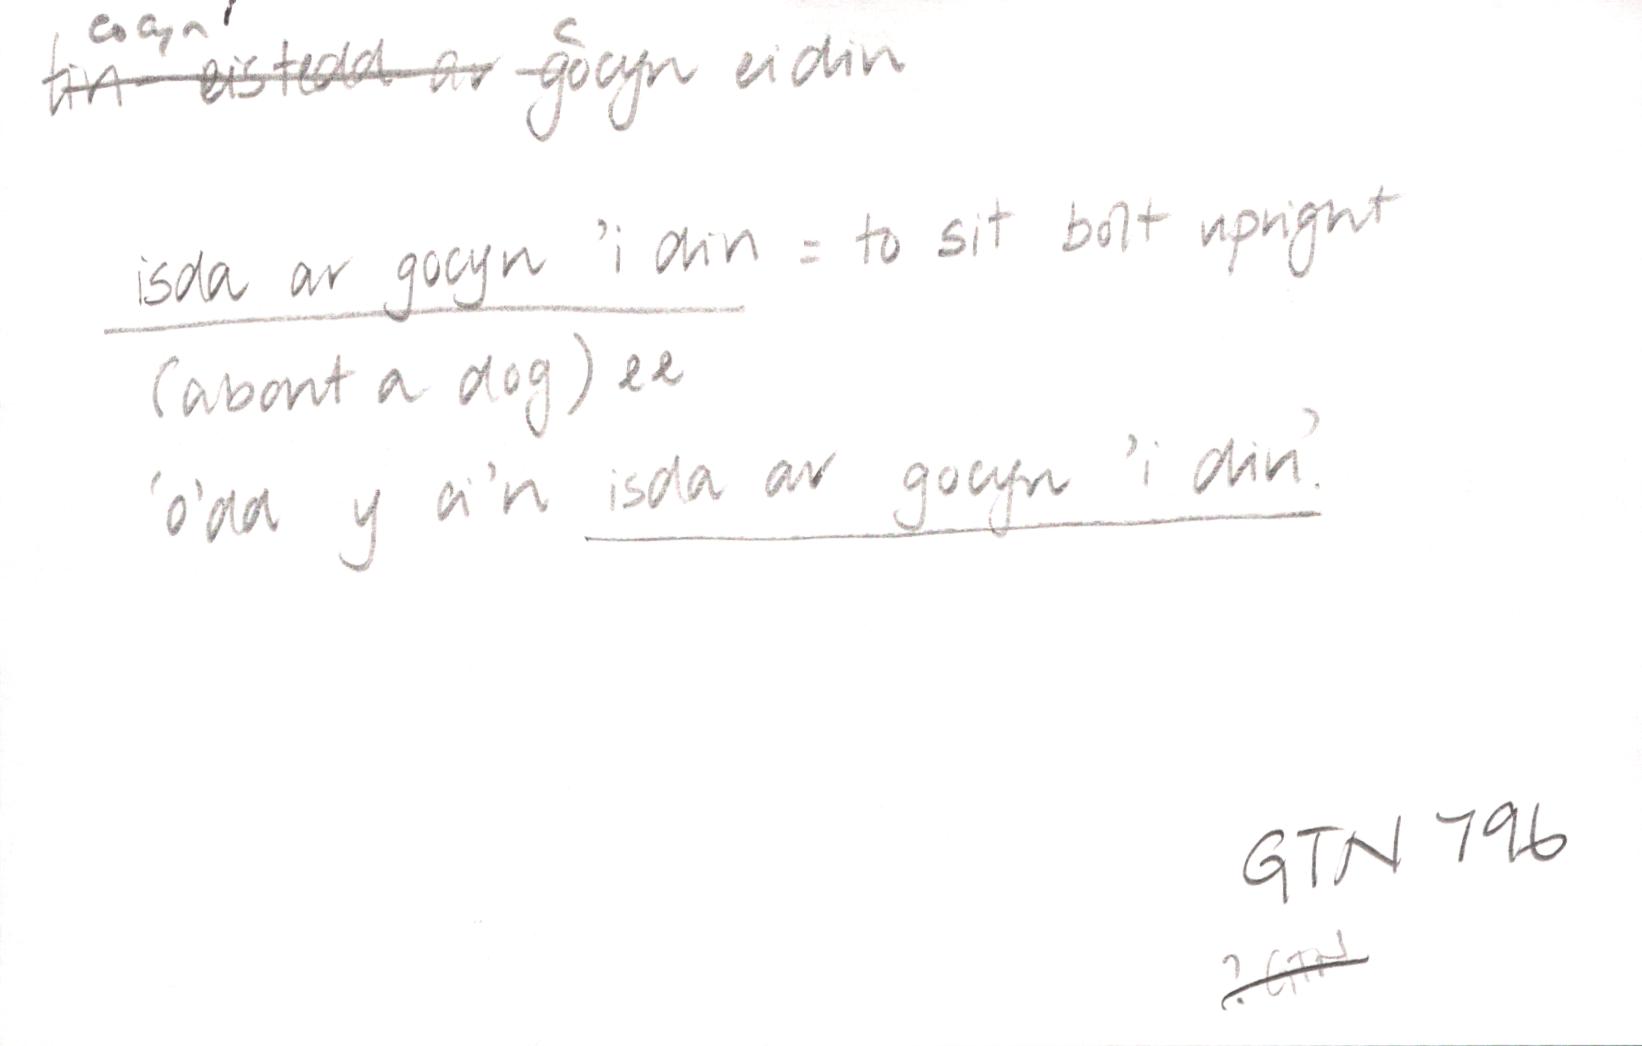 cocyn
tin eistedd ar gocyn ei din
isda ar gocyn 'i din = to sit bolt upright
(about a dog) ee
'o'dd y ci'n isda ar gocyn 'i din'.
GTN 796
? GTN